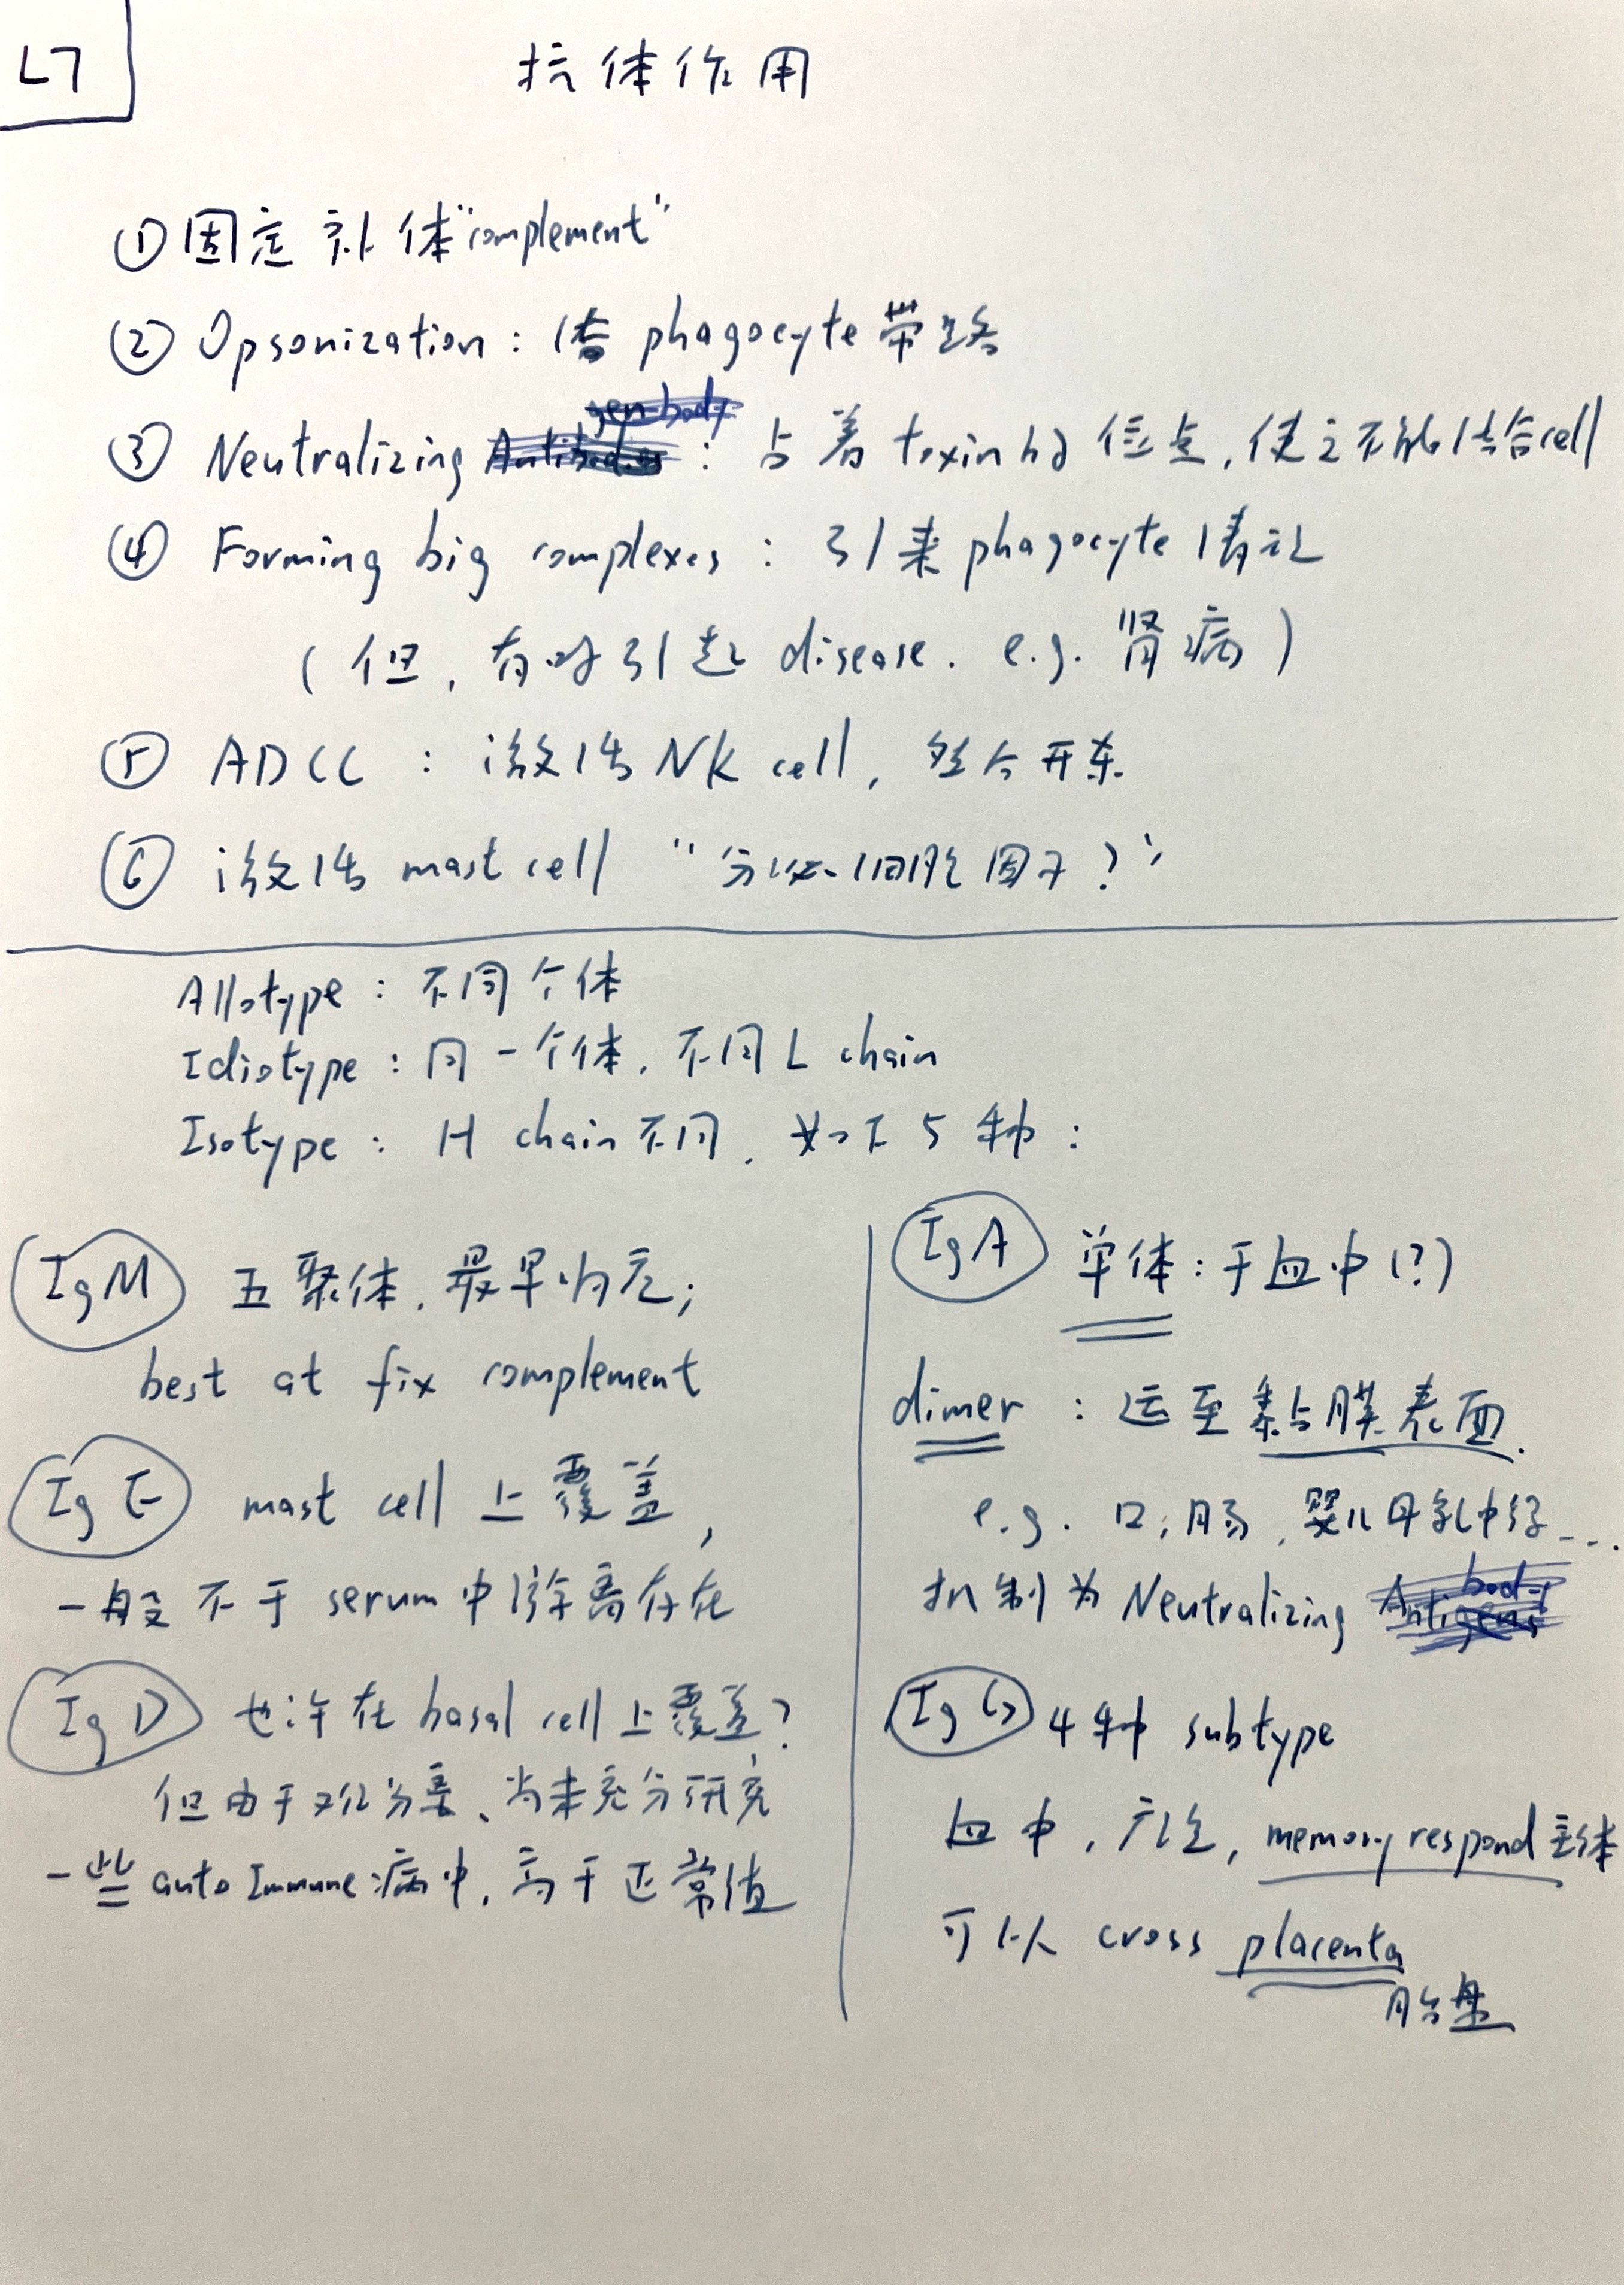 L7
抗体作用
① 固定补体"complement"
② Opsonization : 借 phagocyte 带路
③ Neutralizing : 占着 toxin的 位点, 使之不能结合cell
④ Forming big complexes : 引来 phagocyte 清理
( 但, 有时引起 disease. e.g. 肾病 )
⑤ ADCC : 激活 NK cell,
⑥ 激活 mast cell "分泌细胞因子?"
Allotype : 不同个体
Idiotype : 同一个体, 不同 L chain
Isotype : H chain 不同. 如下 5 种 :
IgM 五聚体, 最早响应;
best at fix complement
IgE mast cell 上覆盖,
一般不于 serum 中游离存在
IgD 也许在 basal cell 上覆盖?
但由于 、尚未充分研究
一些 auto Immune 病中, 高于正常值
IgA 单体 : 于血中 (?)
dimer : 运至黏膜表面.
e.g. 口, 肠, 婴儿母乳中得....
机制为 Neutralizing
IgG 4种 subtype
血中, 广泛, memory respond 主体
可以 cross placenta
胎盘